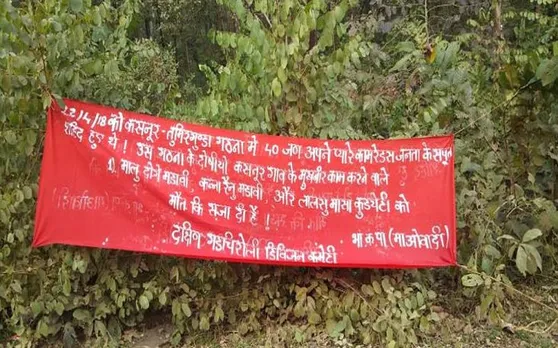 22/4/18 को कसनूर-तुमिरगुण्डा घठना मे 40 जण अपने प्यारे कामरेडस जनता के सपुत
शहिद हुए थे। उस घठना के दोषीयो कसनूर गाव के मुखबीर काम करने वाले
1) मालु दोगे मडावी, कन्ना रैनु मडावी, और लालसु मासा कुडयेटी को
मौत कि सजा दी है।
दक्षिण गडचिरोली डिविजन कमेटी
भा क पा (माओवादी)